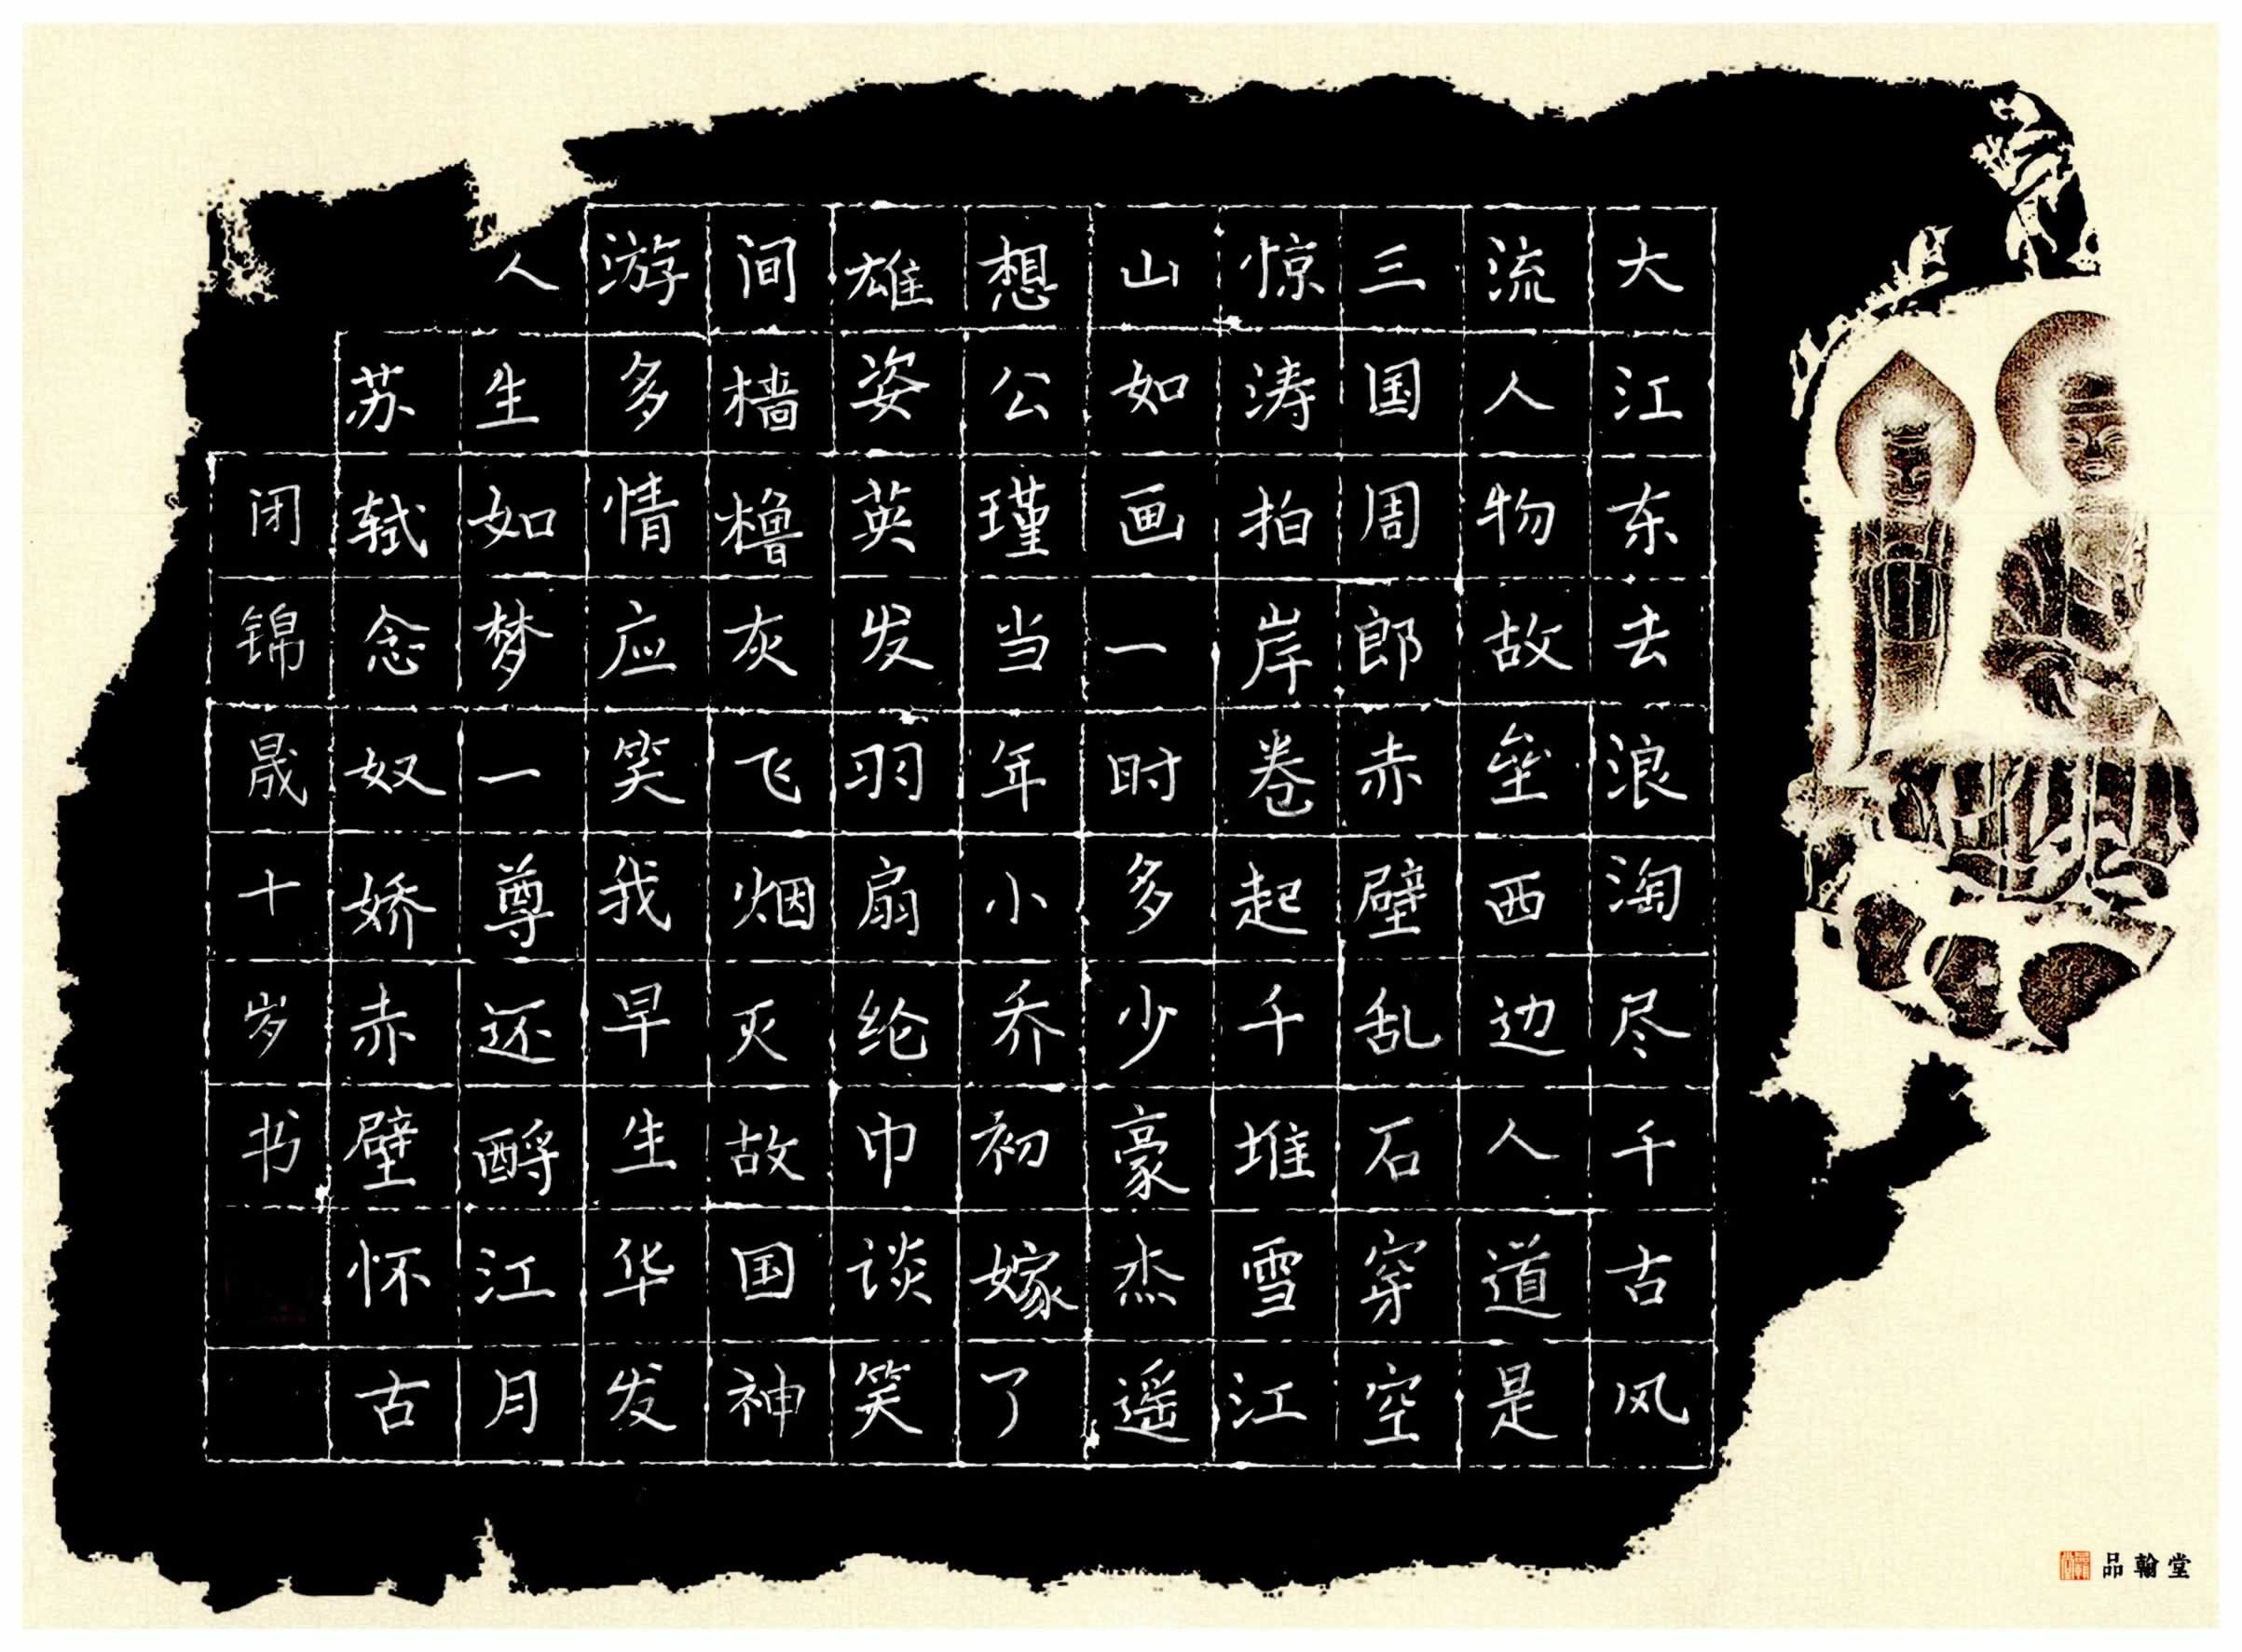 大江东去浪淘尽千古风
流人物故垒西边人道是
三国周郎赤壁乱石穿空
惊涛拍岸卷起千堆雪江
山如画一时多少豪杰遥
想公瑾当年小乔初嫁了
雄姿英发羽扇纶巾谈笑
间樯橹灰飞烟灭故国神
游多情应笑我早生华发
人生如梦一尊还酹江月
苏轼念奴娇赤壁怀古
闭锦晟十岁书
品翰堂